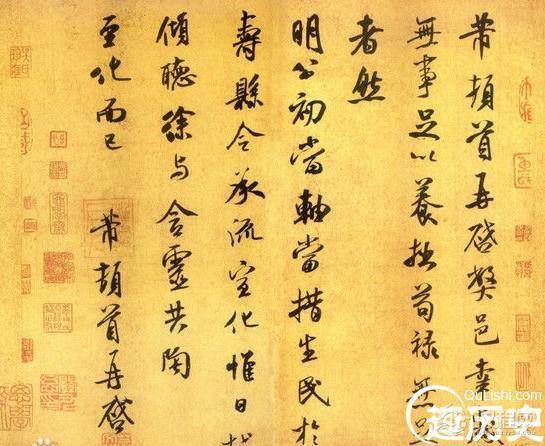 芾頓首再啓弊邑幸歲
無事足以養拙苟祿無足
者然
明公初當軸當措生民於
壽縣令承流宣化惟日
傾聽徐与含靈共陶
至化而已 芾頓首再啓
QuLishi.com
趣历史